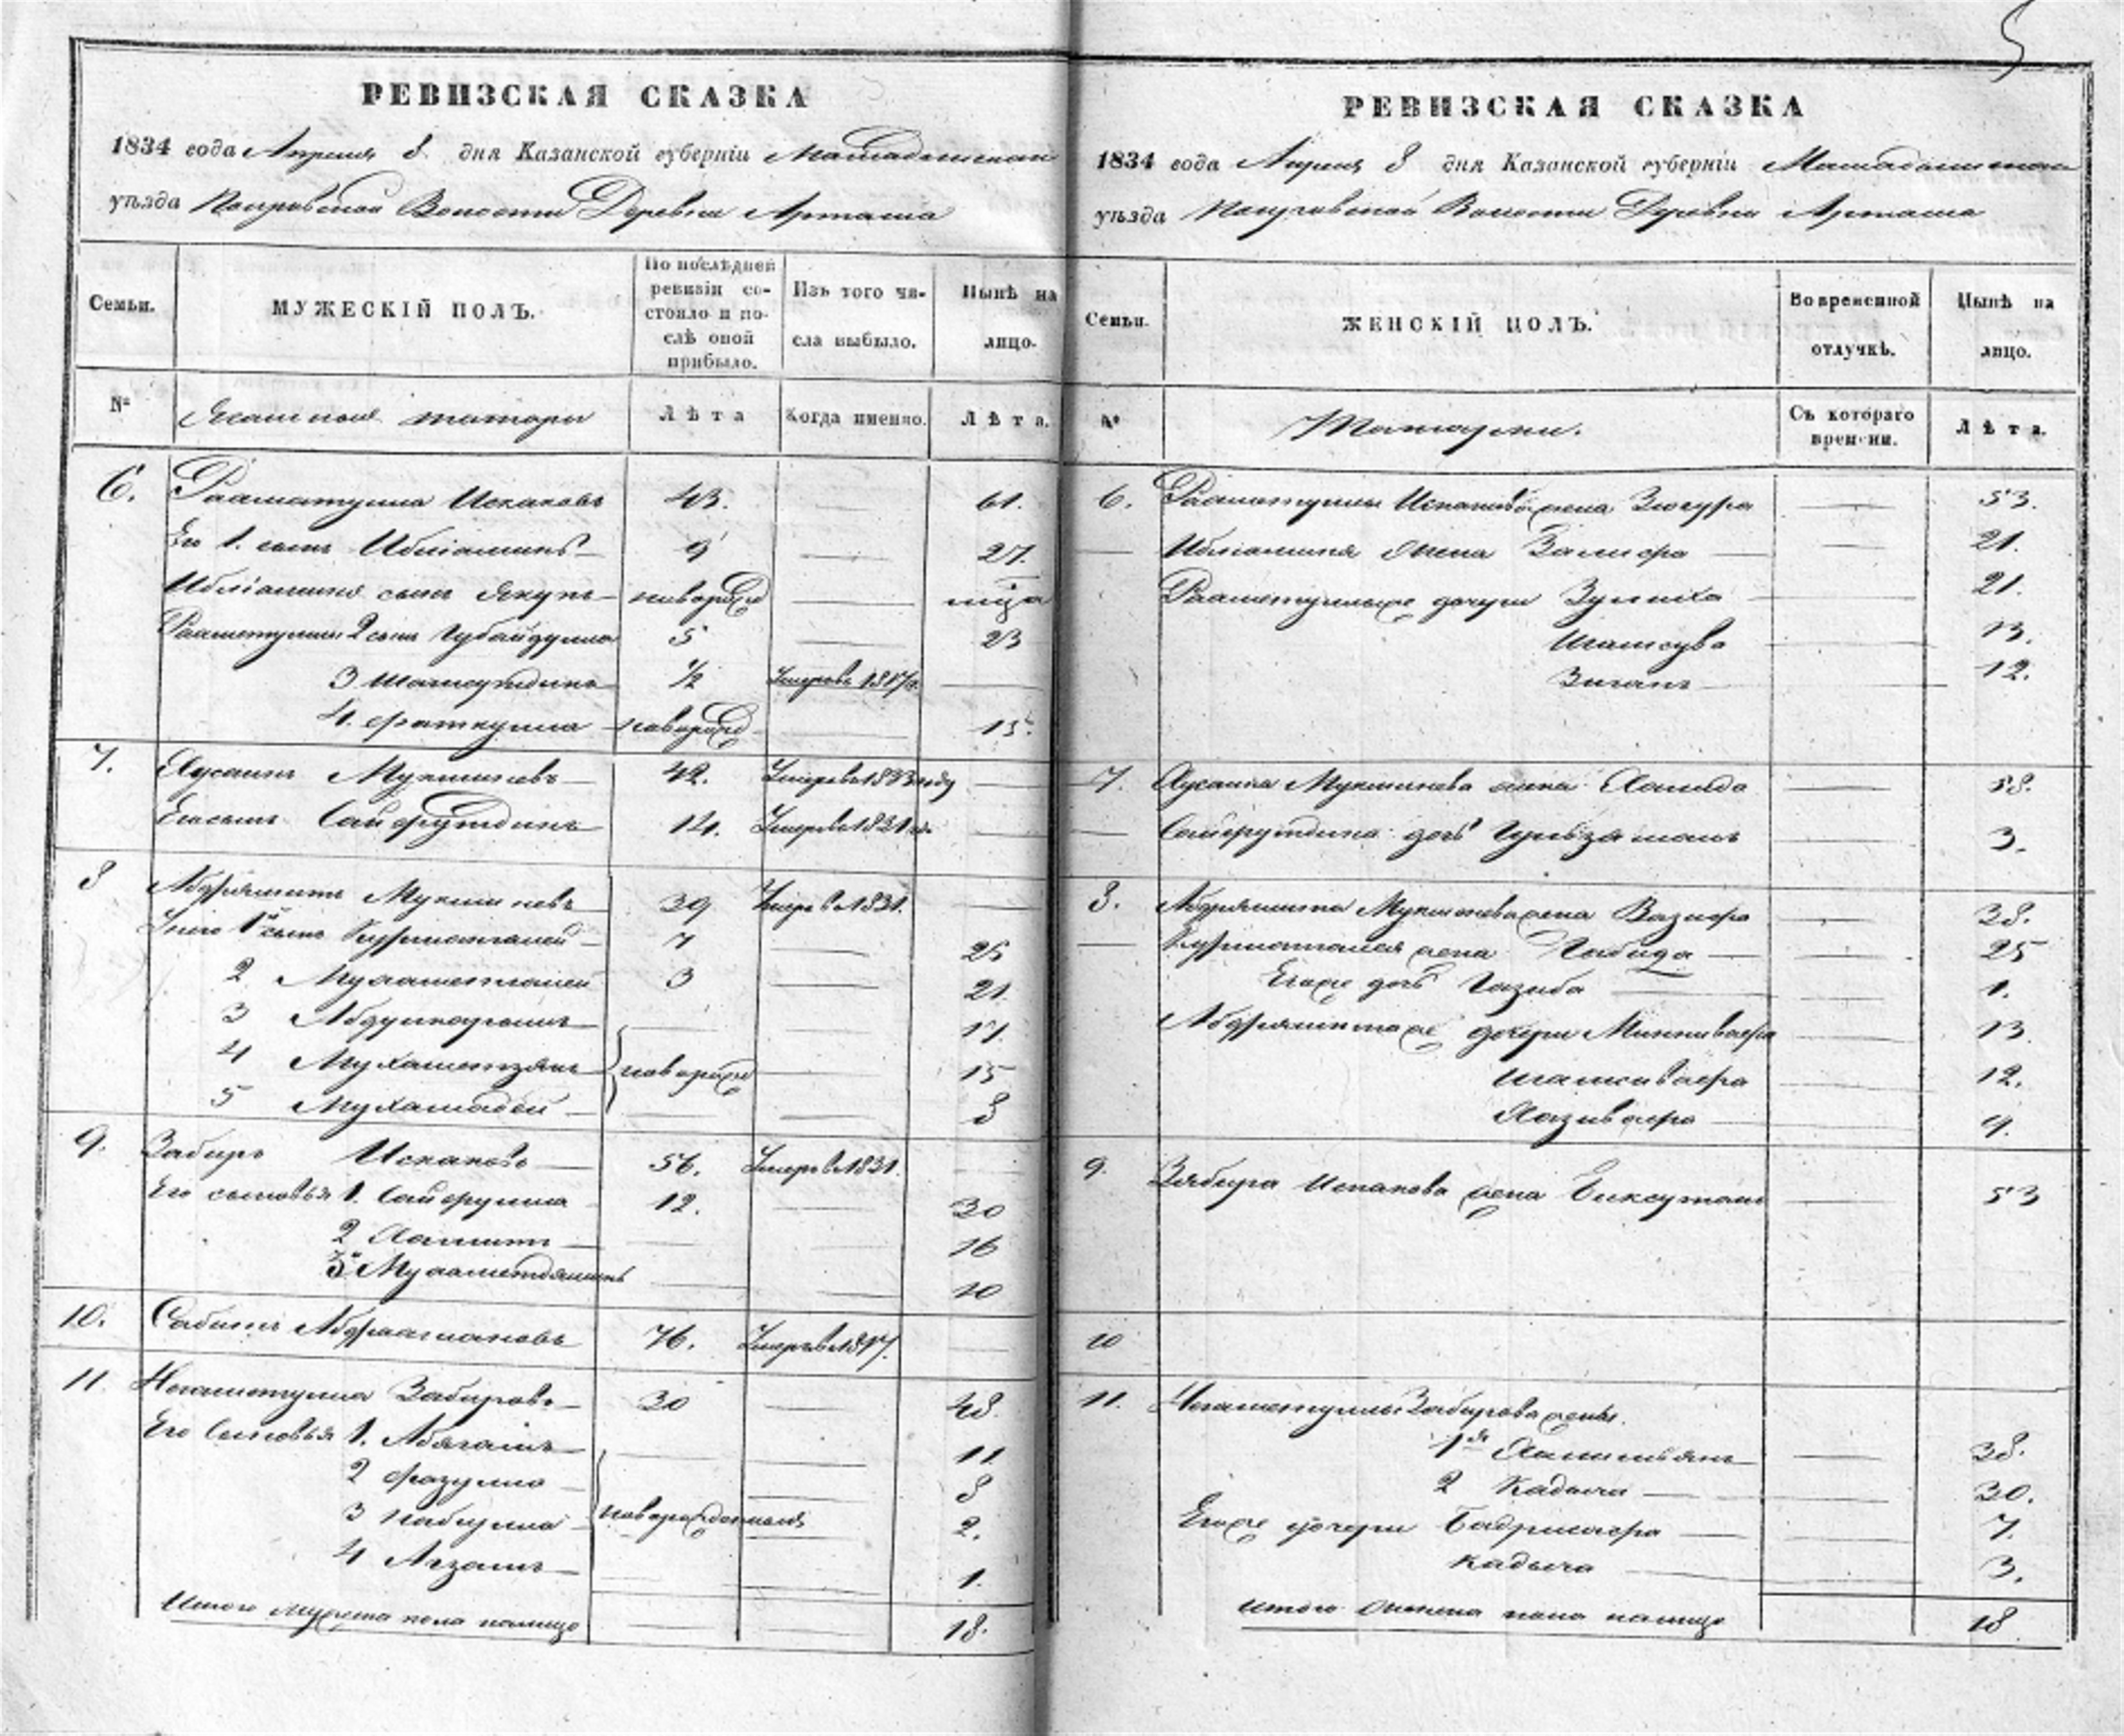 5
РЕВИЗСКАЯ СКАЗКА
1834 года Апреля 8 дня Казанской губерніи Мамадышскаго
уѣзда Волости Деревни Арташа
Семьи. МУЖЕСКІЙ ПОЛЪ. По послѣдней ревизіи состояло и послѣ оной прибыло. Изъ того числа выбыло. Нынѣ на лицо.
№ Ясашные татары Лѣта Когда именно. Лѣта.
6. Рахматулла Искаковъ 43. — 61.
Его 1. сынъ Ибліаминъ 9 — 27.
Ибліамина сынъ Якупъ новорожд —
Рахметуллы 2 сынъ Губайдулла 5 — 23
3 Шамсутдинъ ½ Умеръ въ 1817 г. —
4. Фаткулла новорожд — 15.
7. Хусаинъ Мукминевъ 42. Умеръ въ 1833 году —
Его сынъ Сайфутдинъ 14. Умеръ въ 1831 г. —
8 Абдряшитъ Мукминевъ 39 Умеръ въ 1831. —
У него 1й сынъ 7 — 25
2 Мухаметгалей 3 — 21
3 Абдулкаримъ — — 17.
4 Мухаметзянъ новорожд — 15
5 Мухамадей — — 8
9. Забиръ Искаковъ 56. Умеръ въ 1831. —
Его сыновья 1. Сайфулла 12. — 30
2 Хамитъ — — 16
3й — — 10
10. Сабитъ Абдрахмановъ 76. Умеръ въ 1817. —
11. Негаметулла Забировъ 30 — 48
Его Сыновья 1. — — 11
2 Фазулла — 8
3 Набиулла новорожденныя 2.
4 Агзамъ — — 1.
Итого мужеска пола налицо — — 18.
РЕВИЗСКАЯ СКАЗКА
1834 года Апреля 8 дня Казанской губерніи Мамадышскаго
уѣзда Волости Деревни Арташа
Семьи. ЖЕНСКІЙ ПОЛЪ. Во временной отлучкѣ. Нынѣ на лицо.
№ Татарки. Съ котораго времени. Лѣта.
6. Рахметуллы Искакова жена Зюгура — 53.
— Ибліамина жена — 21.
Рахметуллы же дочери — 21.
— 13.
— 12.
7. Хусаина Мукминева жена Хамида — 58.
— Сайфутдина дочь — 3.
8. Абдряшита Мукминева жена Вазифа — 38.
— жена — 25
Его же дочь Газиба — 1.
Абдряшита же дочери Миннивафа — 13
Шамсивафа — 12.
Хазивафа — 9.
9. Забира Искакова жена — 53
10
11. Негаметуллы Забирова жены.
1я — 38.
2 Кадыча — 30.
Его же дочери Бадрисафа — 7.
Кадыча — 3.
Итого женска пола налицо 18